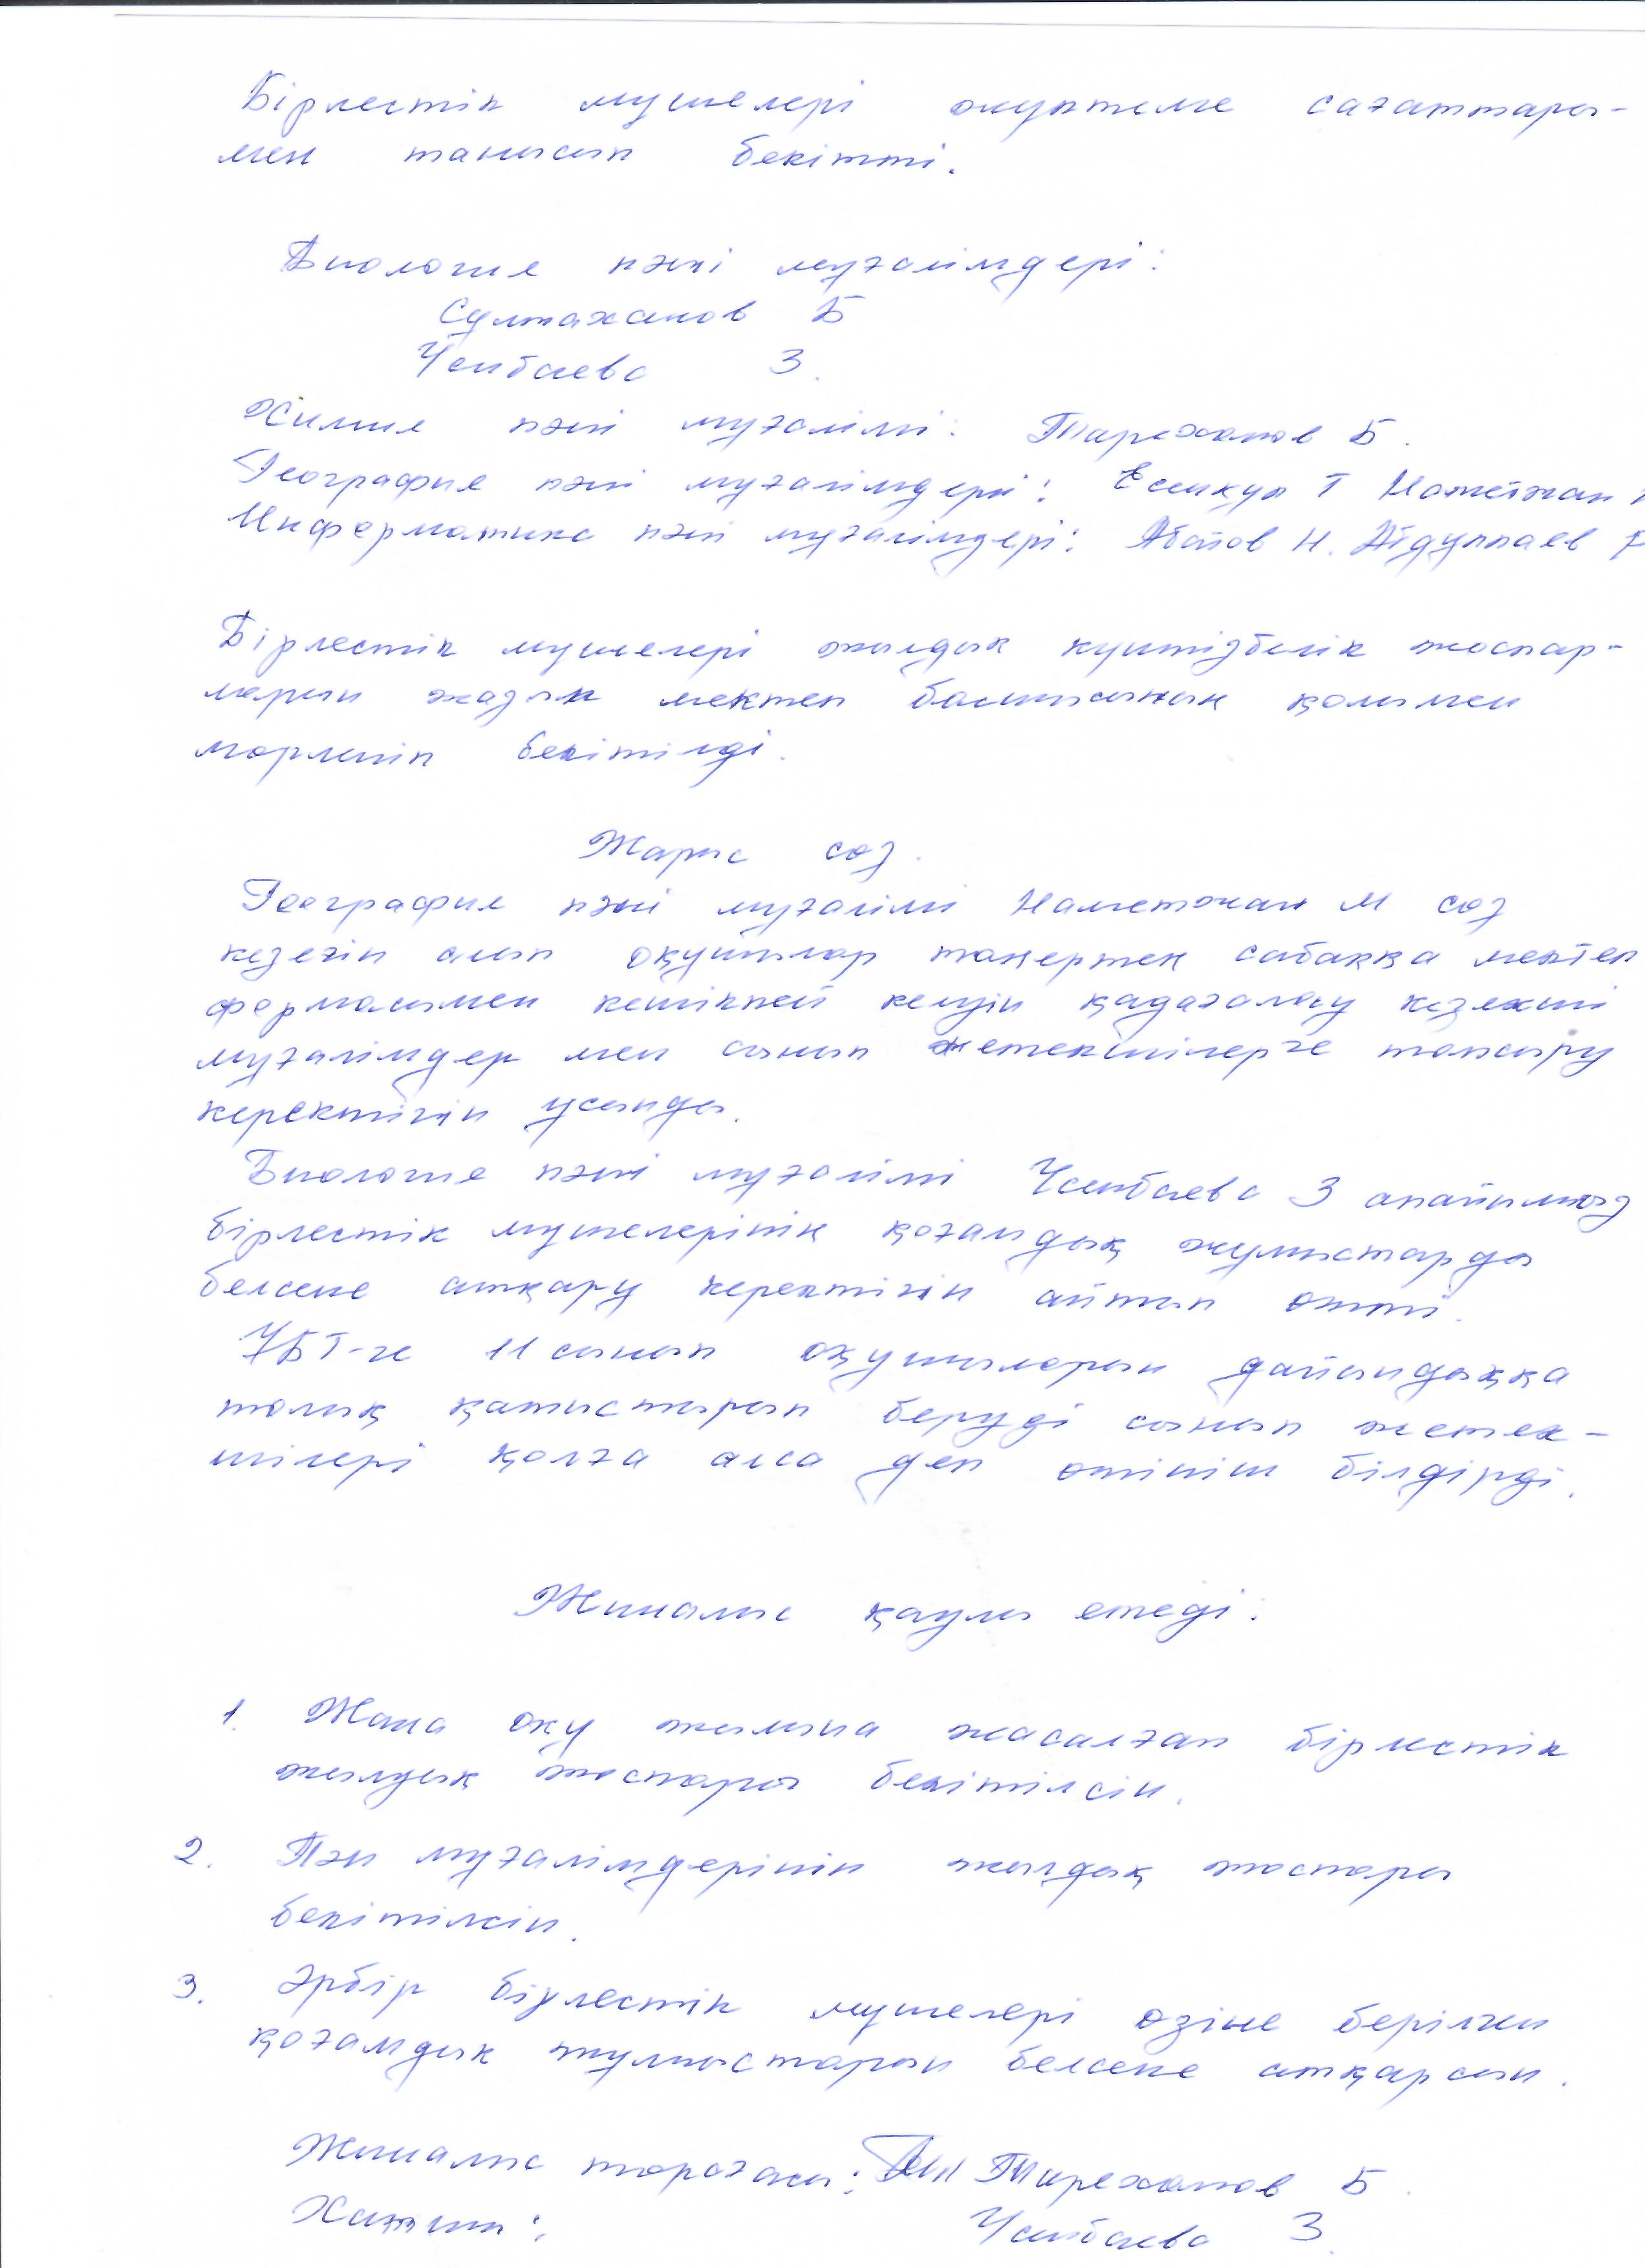 Бірлестік мүшелері оқужүктеме сағаттары-
мен танысып бекітті.
Биология пәні мұғалімдері:
Сұлтаханов Б
Үсипбаева З.
Химия пәні мұғалімі: Тирежанов Б.
География пәні мұғалімдері: Есенқұл Т Маметжан
Информатика пәні мұғалімдері: Абатов Н. Абдуллаев
Бірлестік мүшелері жылдық күнтізбелік жоспар-
ларын жазып мектеп басшысынын қолымен
мөрленіп бекітілді.
Жарыс сөз.
География пәні мұғалімі Маметжан М сөз
кезегін алып оқушылар таңертең сабаққа мектеп
формасымен кешікпей келуін қадағалау кезекші
мұғалімдер мен сынып жетекшілерге тапсыру
керектігін ұсынды.
Биология пәні мұғалімі Үсипбаева З апайымыз
бірлестік мүшелерінің қоғамдық жұмыстарды
белсене атқару керектігін айтып өтті.
ҰБТ-ге 11 сынып оқушыларын дайындыққа
толық қатыстырып беруді сынып жетек-
шілері қолға алса деп өтініш білдірді.
Жиналыс қаулы етеді:
1. Жаңа оқу жылына жасалған бірлестік
жылдық жоспары бекітілсін.
2. Пән мұғалімдерінің жылдық жоспары
бекітілсін.
3. Әрбір бірлестік мүшелері өзіне берілген
қоғамдық жұмыстарын белсене атқарсын.
Жиналыс төрағасы: Тирежанов Б.
Хатшы: Үсипбаева З.